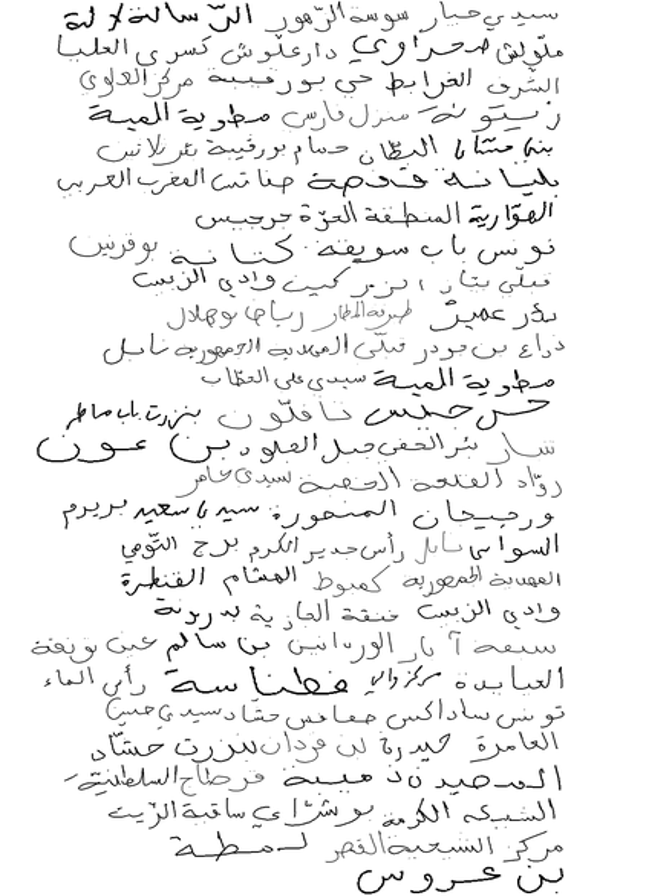 سيدي خيار سوسة الزهور الرسالة لالة
ملولش صحراوي دار علوش كسرى العليا
الشرف الخرايط حي بورقيبة مركز العلوي
زيتونة منزل فارس مطوية المية
بني متشايا البطان حمام بورقيبة
بليانة قفصة صفاقس المغرب العربي
الهوارية المنطقة الحرة جرجيس
تونس باب سويقة كتانة بوقرنين
قبلي بشار وادي الزيت
بئر عمير طبرقة المطار
ذراع بن جودر قبلي المهدية الجمهورية نابل
مطوية المية سيدي علي الحطاب
نافلون بنزرت باب ماطر
بئر الحفي جبل الجلود بن عون
رواد القلعة الخصبة سيدي عامر
المنصورة سيدي سعيد بريدم
السواسي نابل رأس جدير الكرم برج التومي
المهدية الجمهورية كمبوط الهشام القنطرة
وادي الزيت خنقة الجازية
سبعة آبار الوردانين بن سالم عين بونفة
العبايدة مركز والي غطناسة رأس الماء
تونس ساداكس صفاقس حشاد سيدي حسين
العامرة حيدرة بن قردان بنزرت حشاد
قرطاج السلطنية
الشبيكة الكرمة بوشراي ساقية الزيت
مركز الشيحية القصر لمطة
بن عروس